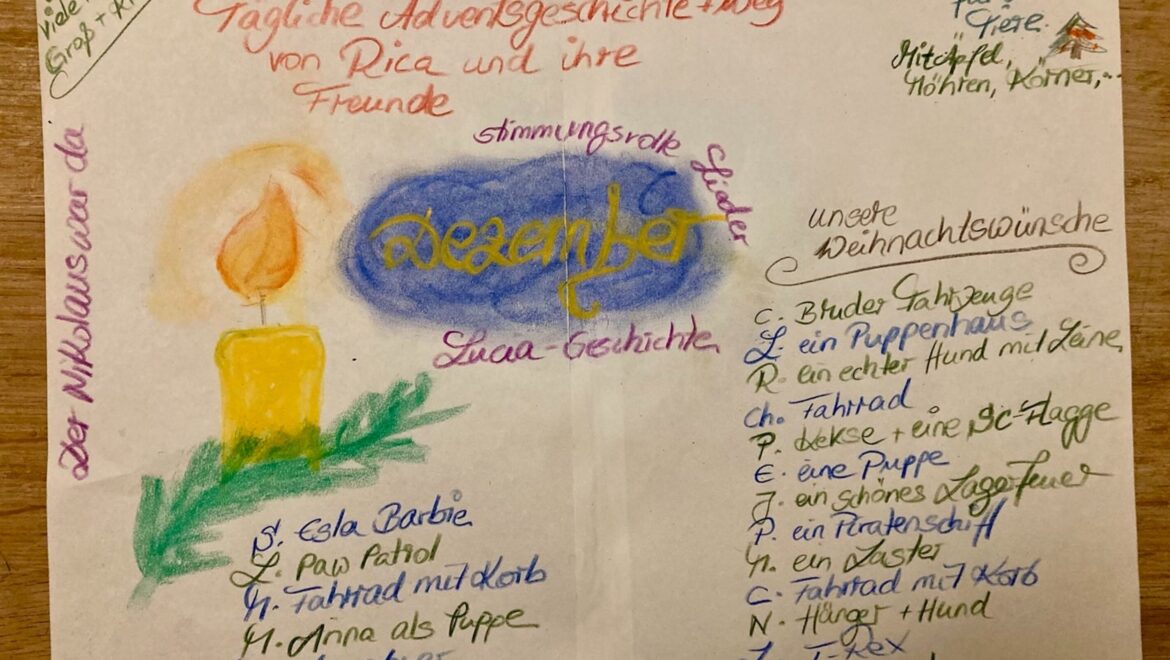 viele
Groß + Kl
Tägliche Adventsgeschichte + Weg
von Rica und ihre
Freunde
für
Tiere.
Mit Äpfel,
Möhren, Körner,...
Der Nikolaus war da
stimmungsvolle
Lieder
Dezember
Lucia-Geschichte
unsere
Weihnachtswünsche
C. Bruder Fahrzeuge
L. ein Puppenhaus
R. ein echter Hund mit Leine
Ch. Fahrrad
P. Kekse + eine SC-Flagge
E. eine Puppe
J. ein schönes Lagerfeuer
P. ein Piratenschiff
M. ein Laster
C. Fahrrad mit Korb
N. Hänger + Hund
T-Rex
S. Esla Barbie
L. Paw Patrol
M. Fahrrad mit Korb
M. Anna als Puppe